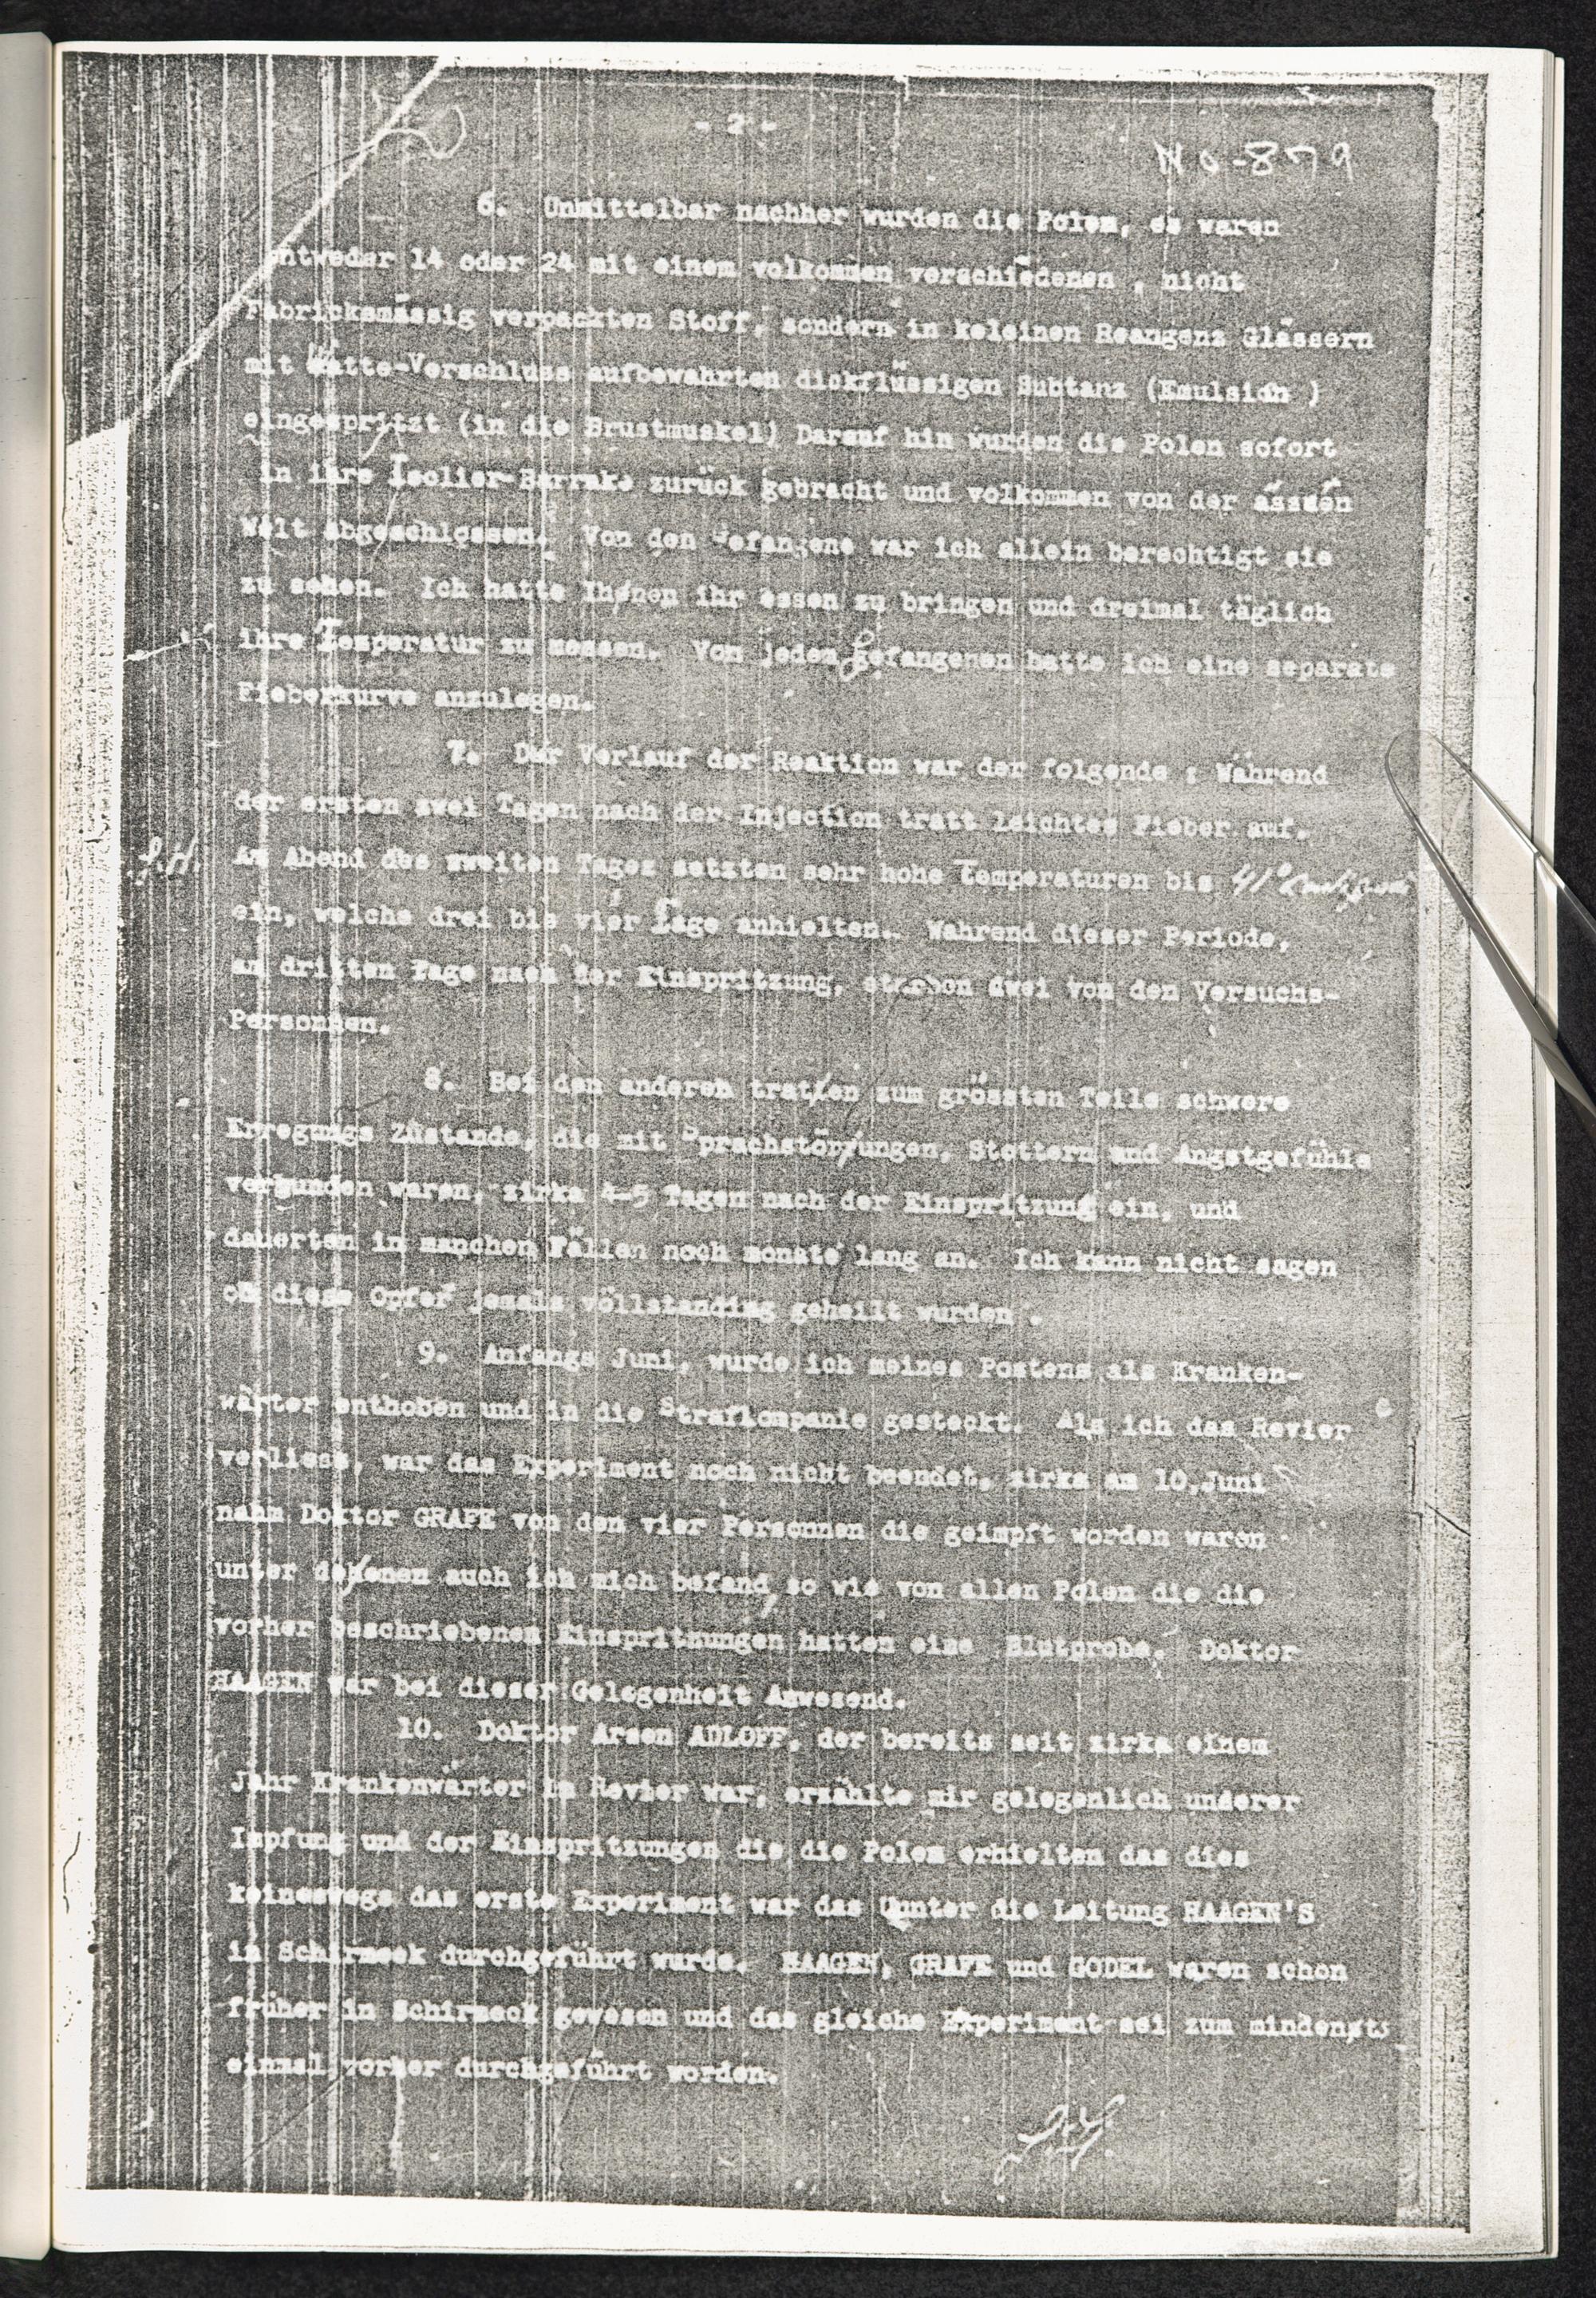 - 2 -
No-879
6. Unmittelbar nachher wurden die Polen, es waren
entweder 14 oder 24 mit einem volkommen verschiedenen , nicht
Fabricksmässig verpackten Stoff, sondern in keleinen Reangenz Glässern
mit Watte-Verschluss aufbewahrten dickflüssigen Subtanz (Emulsion )
eingespritzt (in die Brustmuskel) Darauf hin wurden die Polen sofort
in ihre Isolier-Barrake zurück gebracht und volkommen von der
Welt abgeschlossen. Von den Gefangene war ich allein berechtigt sie
zu sehen. Ich hatte Ihnen ihr essen zu bringen und dreimal täglich
ihre Temperatur zu messen. Von jeden gefangenen hatte ich eine separate
Fieberkurve anzulegen.
7. Der Verlauf der Reaktion war der folgende : Während
der ersten zwei Tagen nach der Injection tratt leichtes Fieber auf.
Am Abend des zweiten Tages setzten sehr hohe Temperaturen bis 41°
ein, welche drei bis vier Tage anhielten. Während dieser Periode,
am dritten Tage nach der Einspritzung, starben zwei von den Versuchs-
Personnen.
8. Bei den anderen tratten zum grössten Teile schwere
Erregungs Zustande, die mit Sprachstörungen, Stottern und Angstgefühle
verbunden waren, zirka 4-5 Tagen nach der Einspritzung ein, und
dauerten in manchen Fällen noch monate lang an. Ich kann nicht sagen
ob diese Opfer jemals völlstanding geheilt wurden .
9. Anfangs Juni, wurde ich meines Postens als Kranken-
wärter enthoben und in die Straflompanie gesteckt. Als ich das Revier
verliess, war das Experiment noch nicht beendet, zirka am 10,Juni
nahm Doktor GRAFE von den vier Personnen die geimpft worden waren
unter denen auch ich mich befand, so wie von allen Polen die die
vorher beschriebenen Einspritzungen hatten eine Blutprobe. Doktor
HAAGEN war bei dieser Gelegenheit Anwesend.
10. Doktor Arsen ADLOFF, der bereits seit zirka einem
Jahr Krankenwärter im Revier war, erzählte mir gelegenlich underer
Impfung und der Einspritzungen die die Polen erhielten das dies
keineswegs das erste Experiment war das Unter die Leitung HAAGEN'S
in Schirmeck durchgeführt wurde. HAAGEN, GRAFE und GODEL waren schon
früher in Schirmeck gewesen und das gleiche Experiment sei zum mindensts
einmal vorher durchgeführt worden.